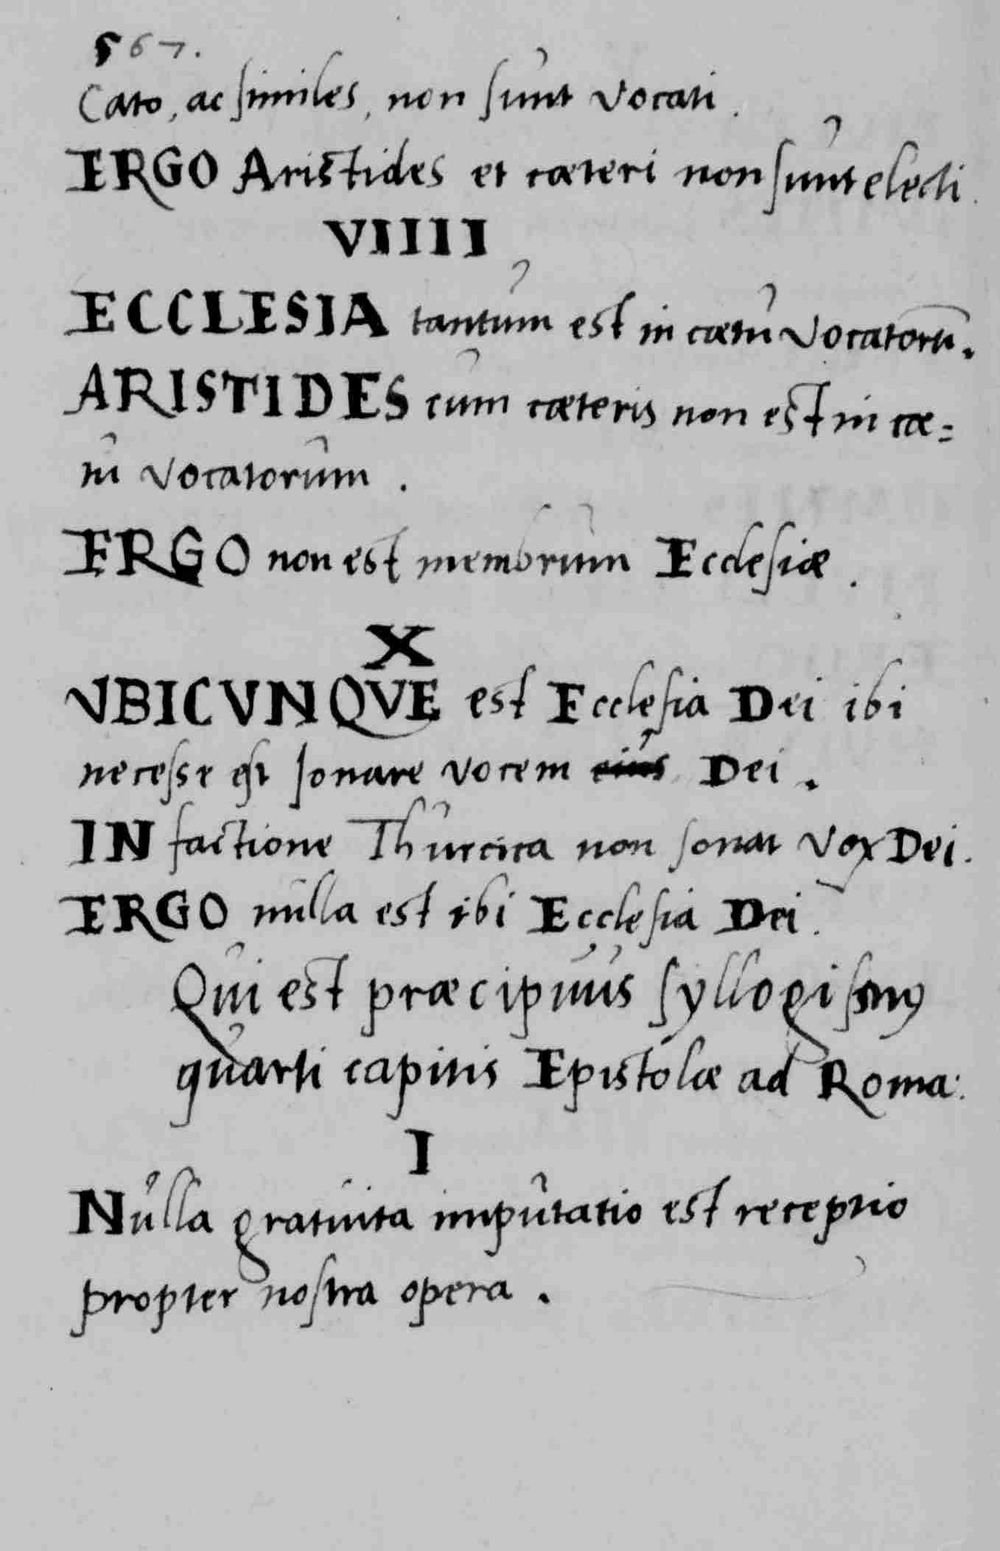 567.
Cato, ac similes, non sunt vocati.
ERGO Aristides et cæteri non sunt electi.
VIIII
ECCLESIA tantum est in cætu vocatorū.
ARISTIDES cum cæteris non est in cæ=
tu vocatorum.
ERGO non est membrum Ecclesiæ.
X
VBICVNQVE est Ecclesia Dei ibi
necesse est sonare vocem eius Dei.
IN factione Thurcica non sonat vox Dei.
ERGO nulla est ibi Ecclesia Dei.
Qui est præcipuus syllogismꝰ
quarti capitis Epistolæ ad Roma:
I
Nulla gratuita imputatio est receptio
propter nostra opera.